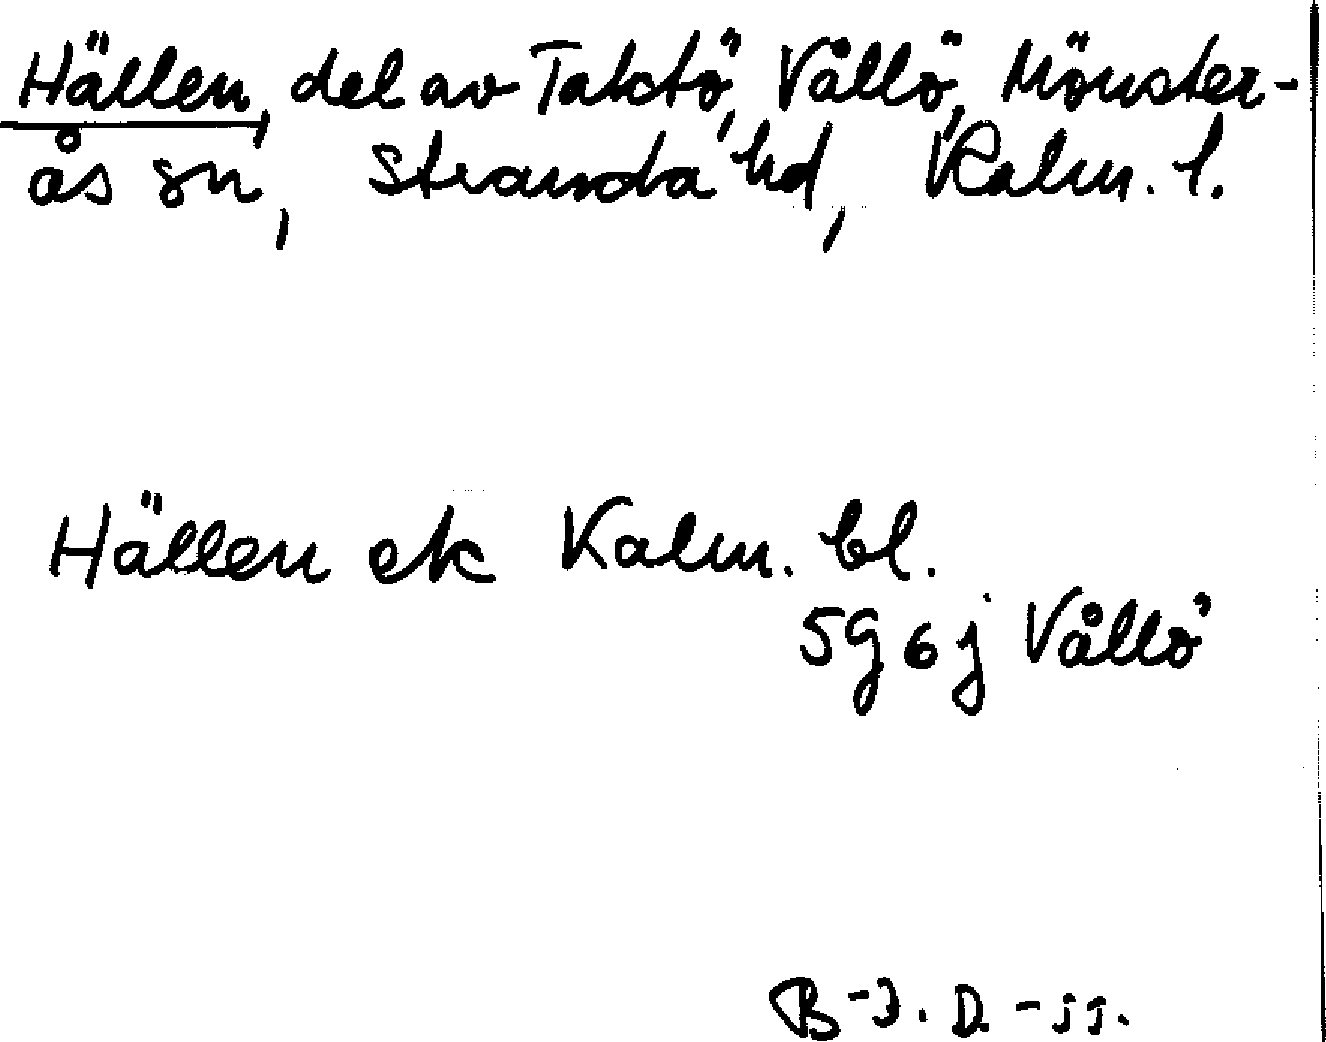 Hällen, del av Taktö, Vållö, Mönster-
ås sn, Stranda hd, Kalm. l.
Hällen ek Kalm. bl.
5g 6j Vållö
B-J. D.